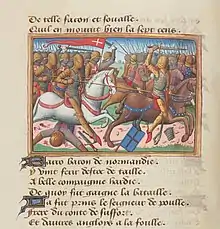 De telle facon et foualle
Quil en mourut bien la sept cens
Dautre baron de normandie
Y vint feur desire de taille
A belle compaignie hardie
De quoy fut gaigne la bataille
La fut prins le seigneur de poulle
Frere du conte de suffort
Et dautres anglois a la foulle